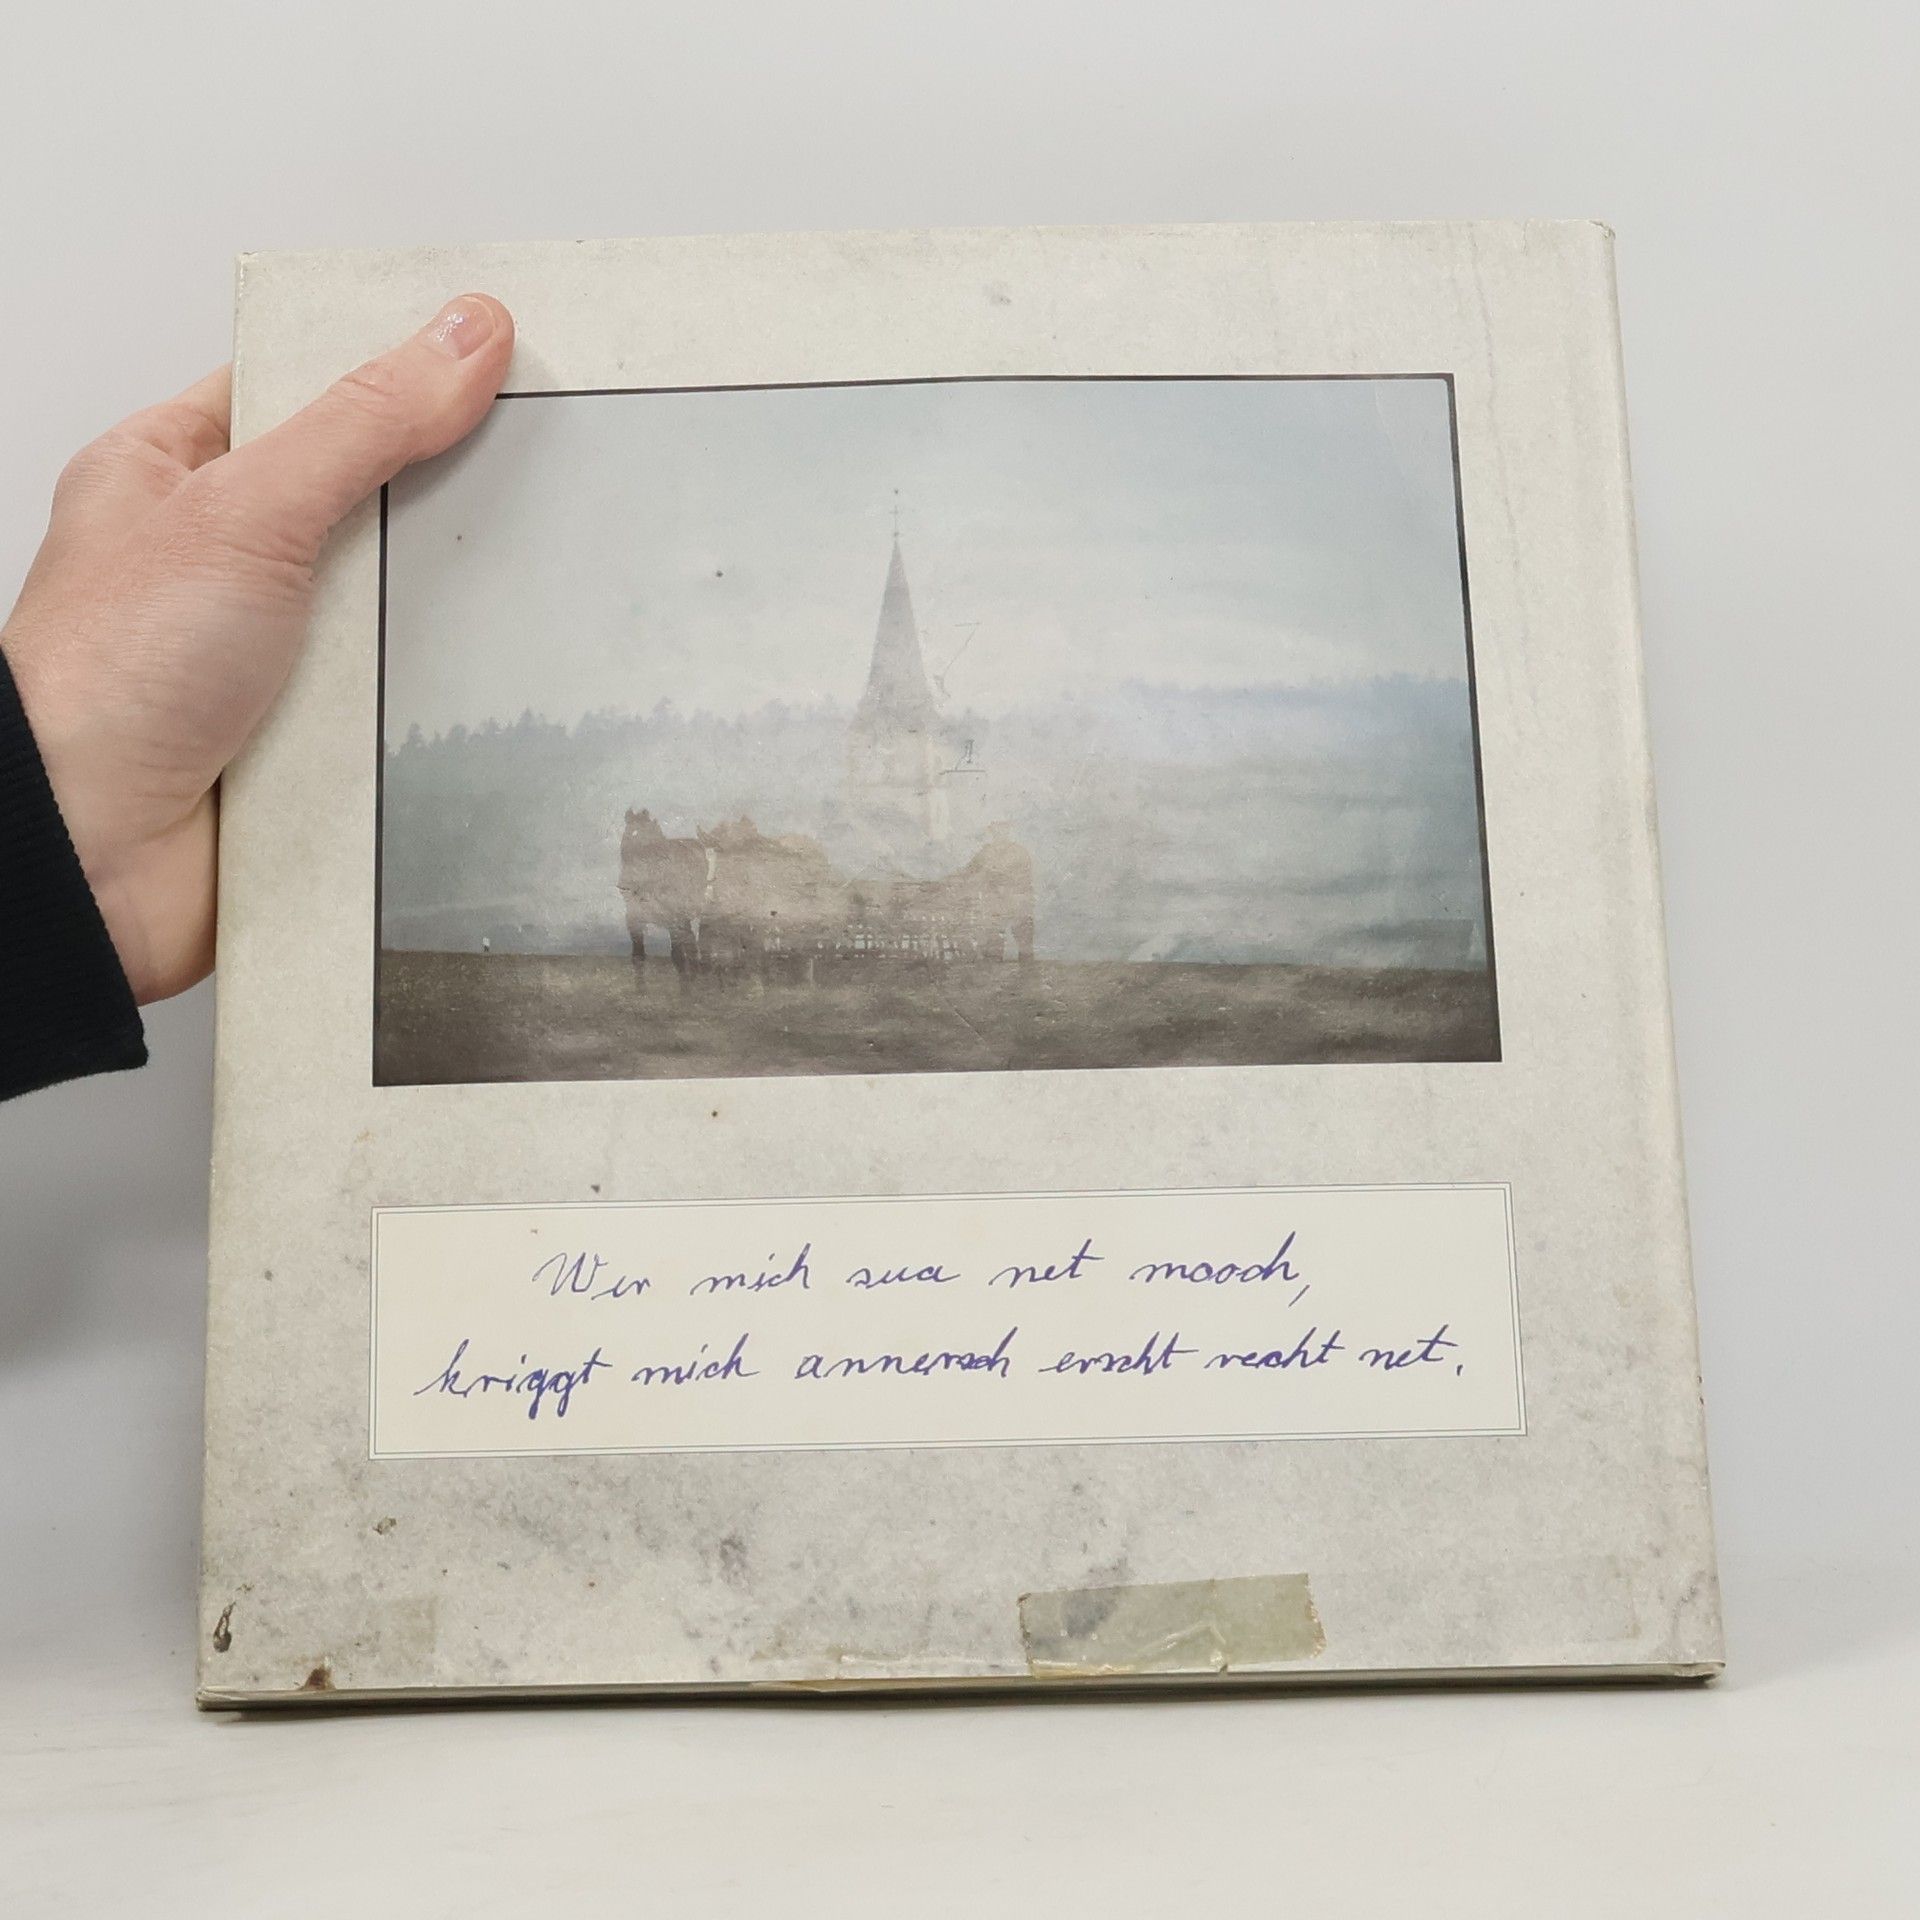 Wer mich sua net mooch,
kriggt mich annersch erscht recht net.